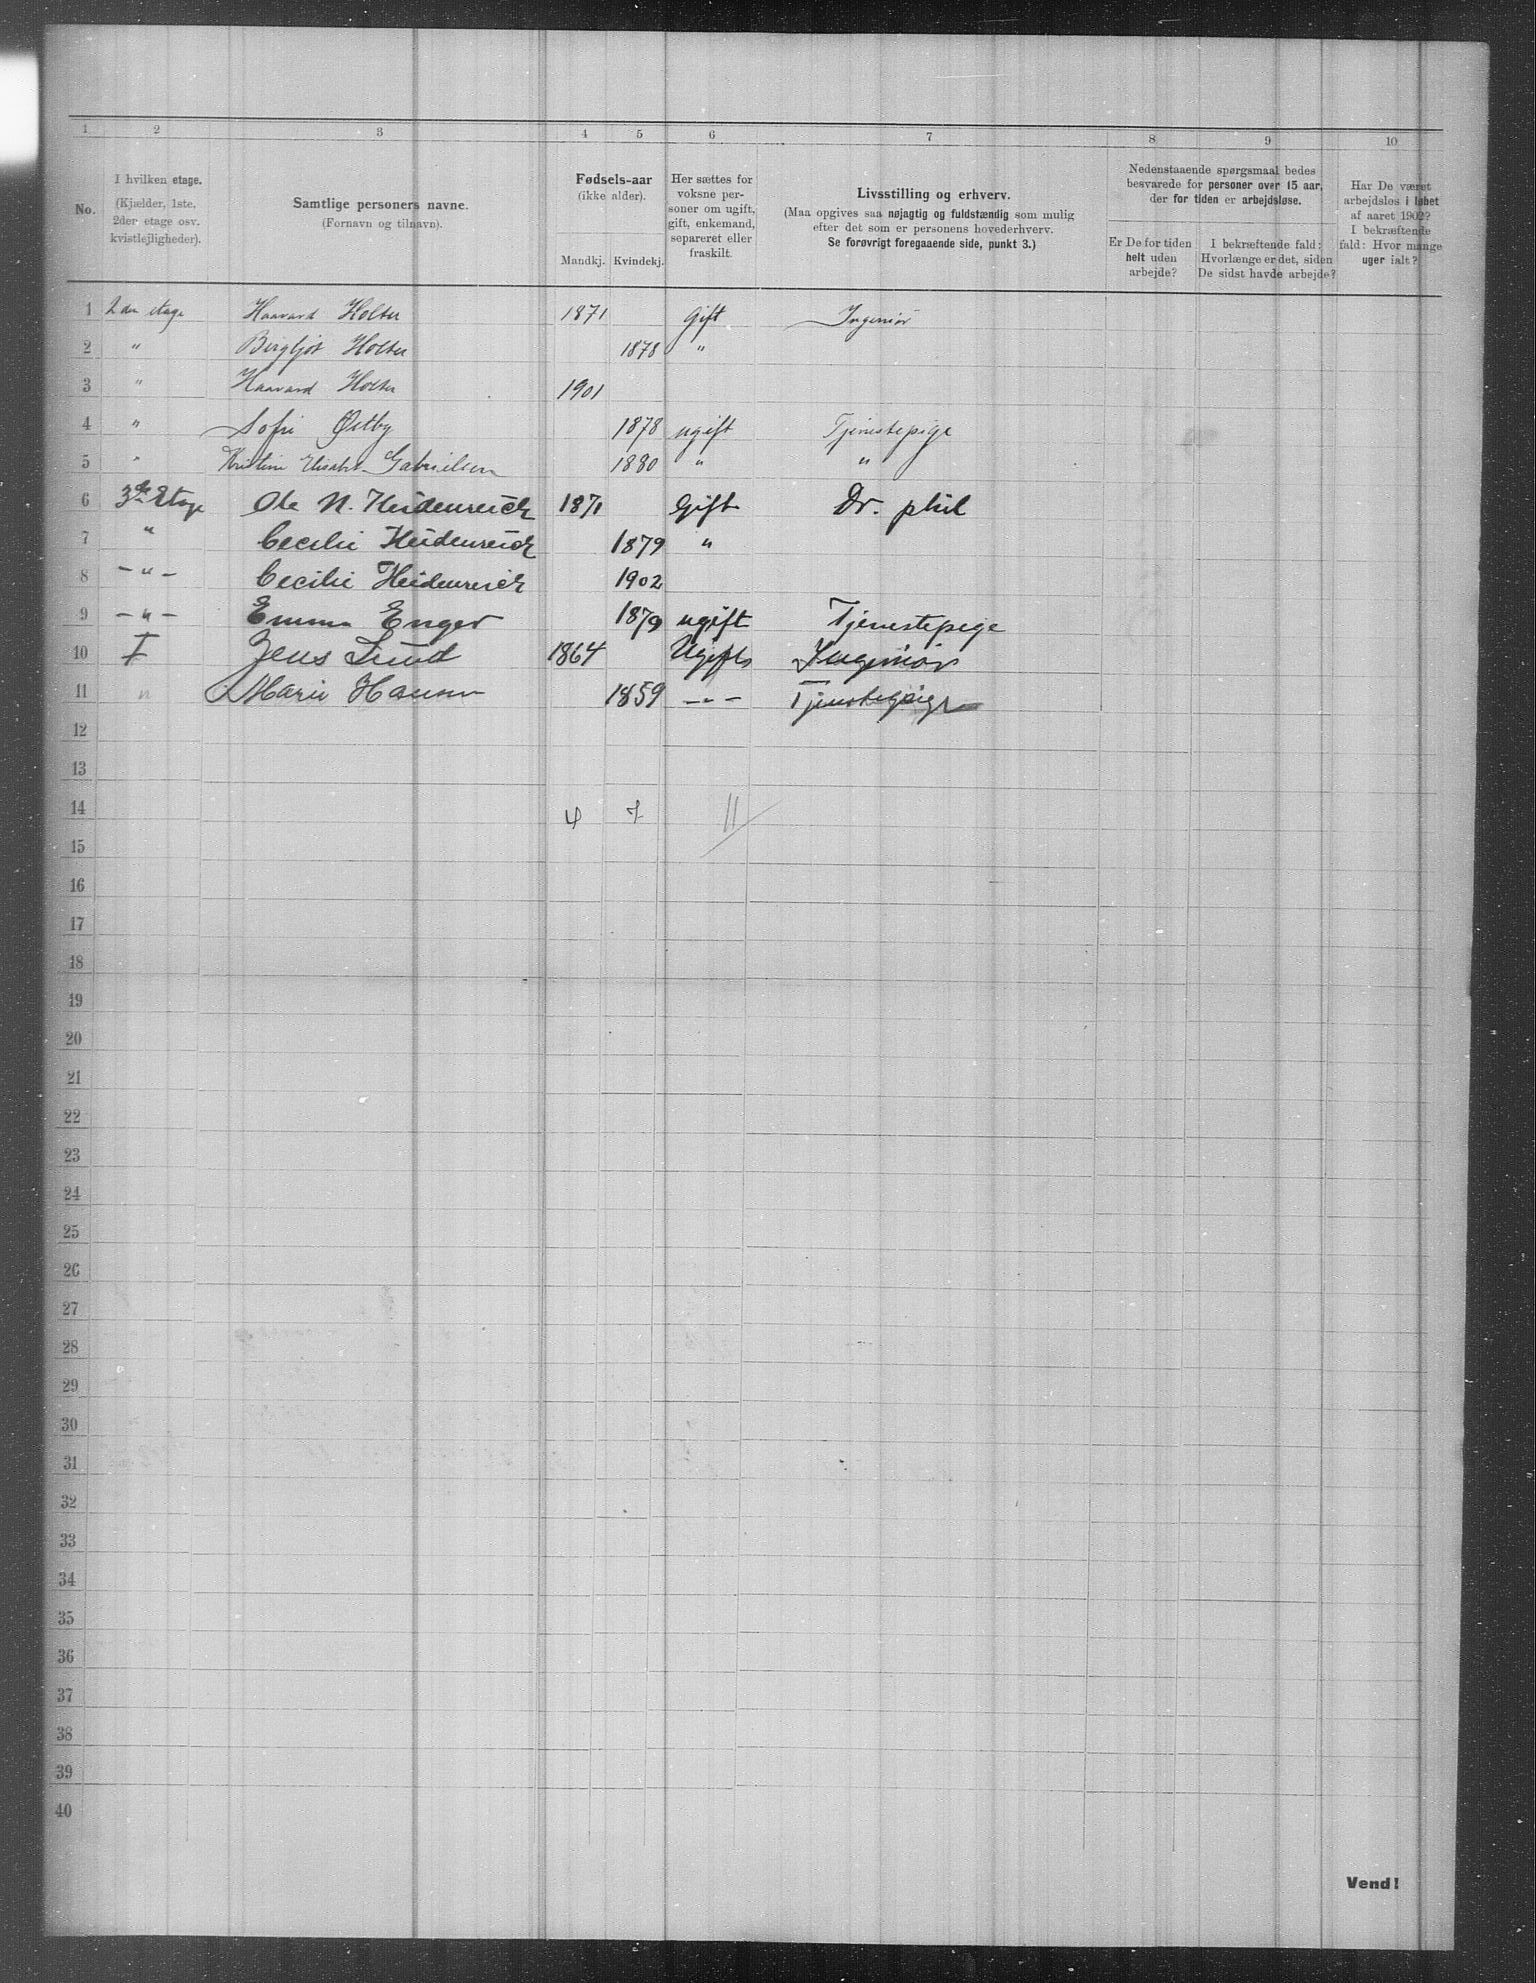 1 2 3 4 5 6 7 8 9 10
No.
I hvilken etage.
(Kjælder, 1ste,
2der etage osv.
kvistlejligheder).
Samtlige personers navne.
(Fornavn og tilnavn).
Fødsels-aar
(ikke alder).
Mandkj. Kvindekj.
Her sættes for
voksne per-
soner om ugift,
gift, enkemand,
separeret eller
fraskilt.
Livsstilling og erhverv.
(Maa opgives saa nøjagtig og fuldstændig som mulig
efter det som er personens hovederhverv.
Se forøvrigt foregaaende side, punkt 3.)
Nedenstaaende spørgsmaal bedes
besvarede for personer over 15 aar,
der for tiden er arbejdsløse.
Er De for tiden
helt uden
arbejde?
I bekræftende fald:
Hvorlænge er det, siden
De sidst havde arbejde?
Har De været
arbejdsløs i løbet
af aaret 1902?
I bekræftende
fald: Hvor mange
uger ialt?
1 2den etage Haavard Holter 1871 Gift Ingeniør
2 " Bergljot Holter 1878 "
3 " Haavard Holter 1901
4 " Sofie Østby 1878 ugift Tjenestepige
5 " Kristine Elisabet Gabrielsen 1880 " "
6 3die Etage Ole N. Heidenreich 1871 Gift Dr. phil
7 " Cecilie Heidenreich 1879 "
8 -"- Cecilie Heidenreich 1902
9 -"- Emma Enger 1879 ugift Tjenestepige
10 I Jens Lund 1864 Ugift Ingeniør
11 " Marie Hansen 1859 -"- Tjenestepige
12
13
14 4 7 11
15
16
17
18
19
20
21
22
23
24
25
26
27
28
29
30
31
32
33
34
35
36
37
38
39
40
Vend!